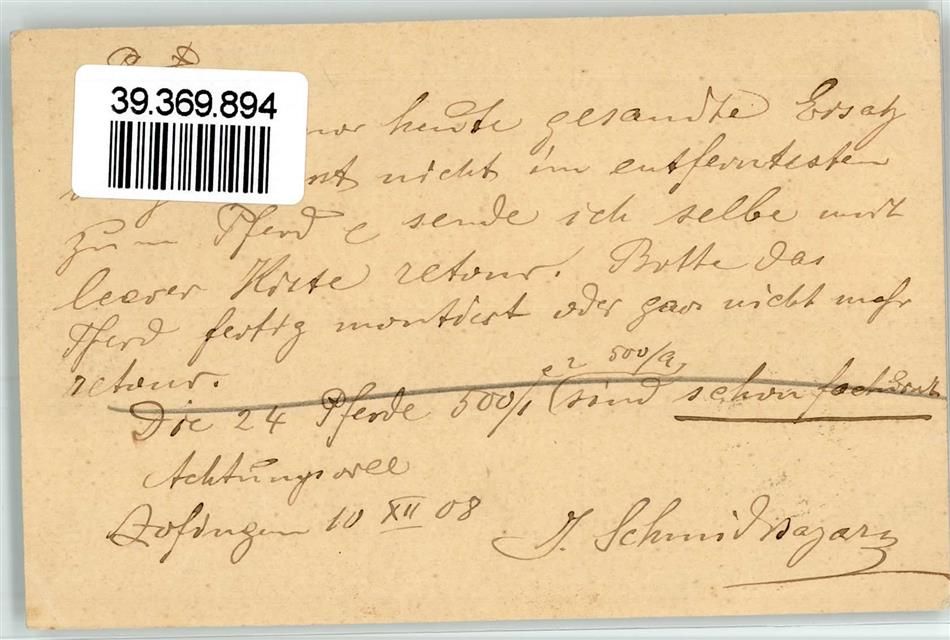 39.369.894
heute gesandte Ersatz
nicht im entferntesten
zum Pferd & sende ich selbe mit
leerer Kiste retour. Bitte das
Pferd fertig montiert oder gar nicht mehr
retour.
& 2 500/a
Die 24 Pferde 500/1 (sind schon
Achtungsvoll
Zofingen 10 XII 08
J. Schmid Bazar